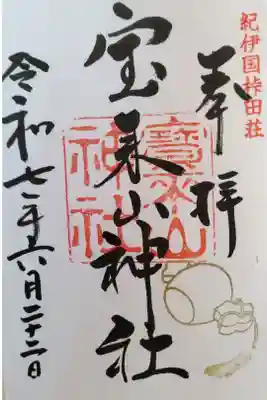 紀伊国桛田荘
奉拝
寳来山神社
宝来山神社
令和七年六月二十二日